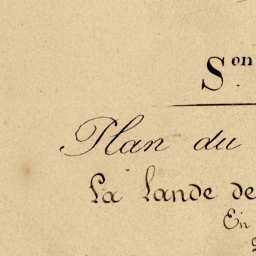 Son.
Plan du
La Lande de
En